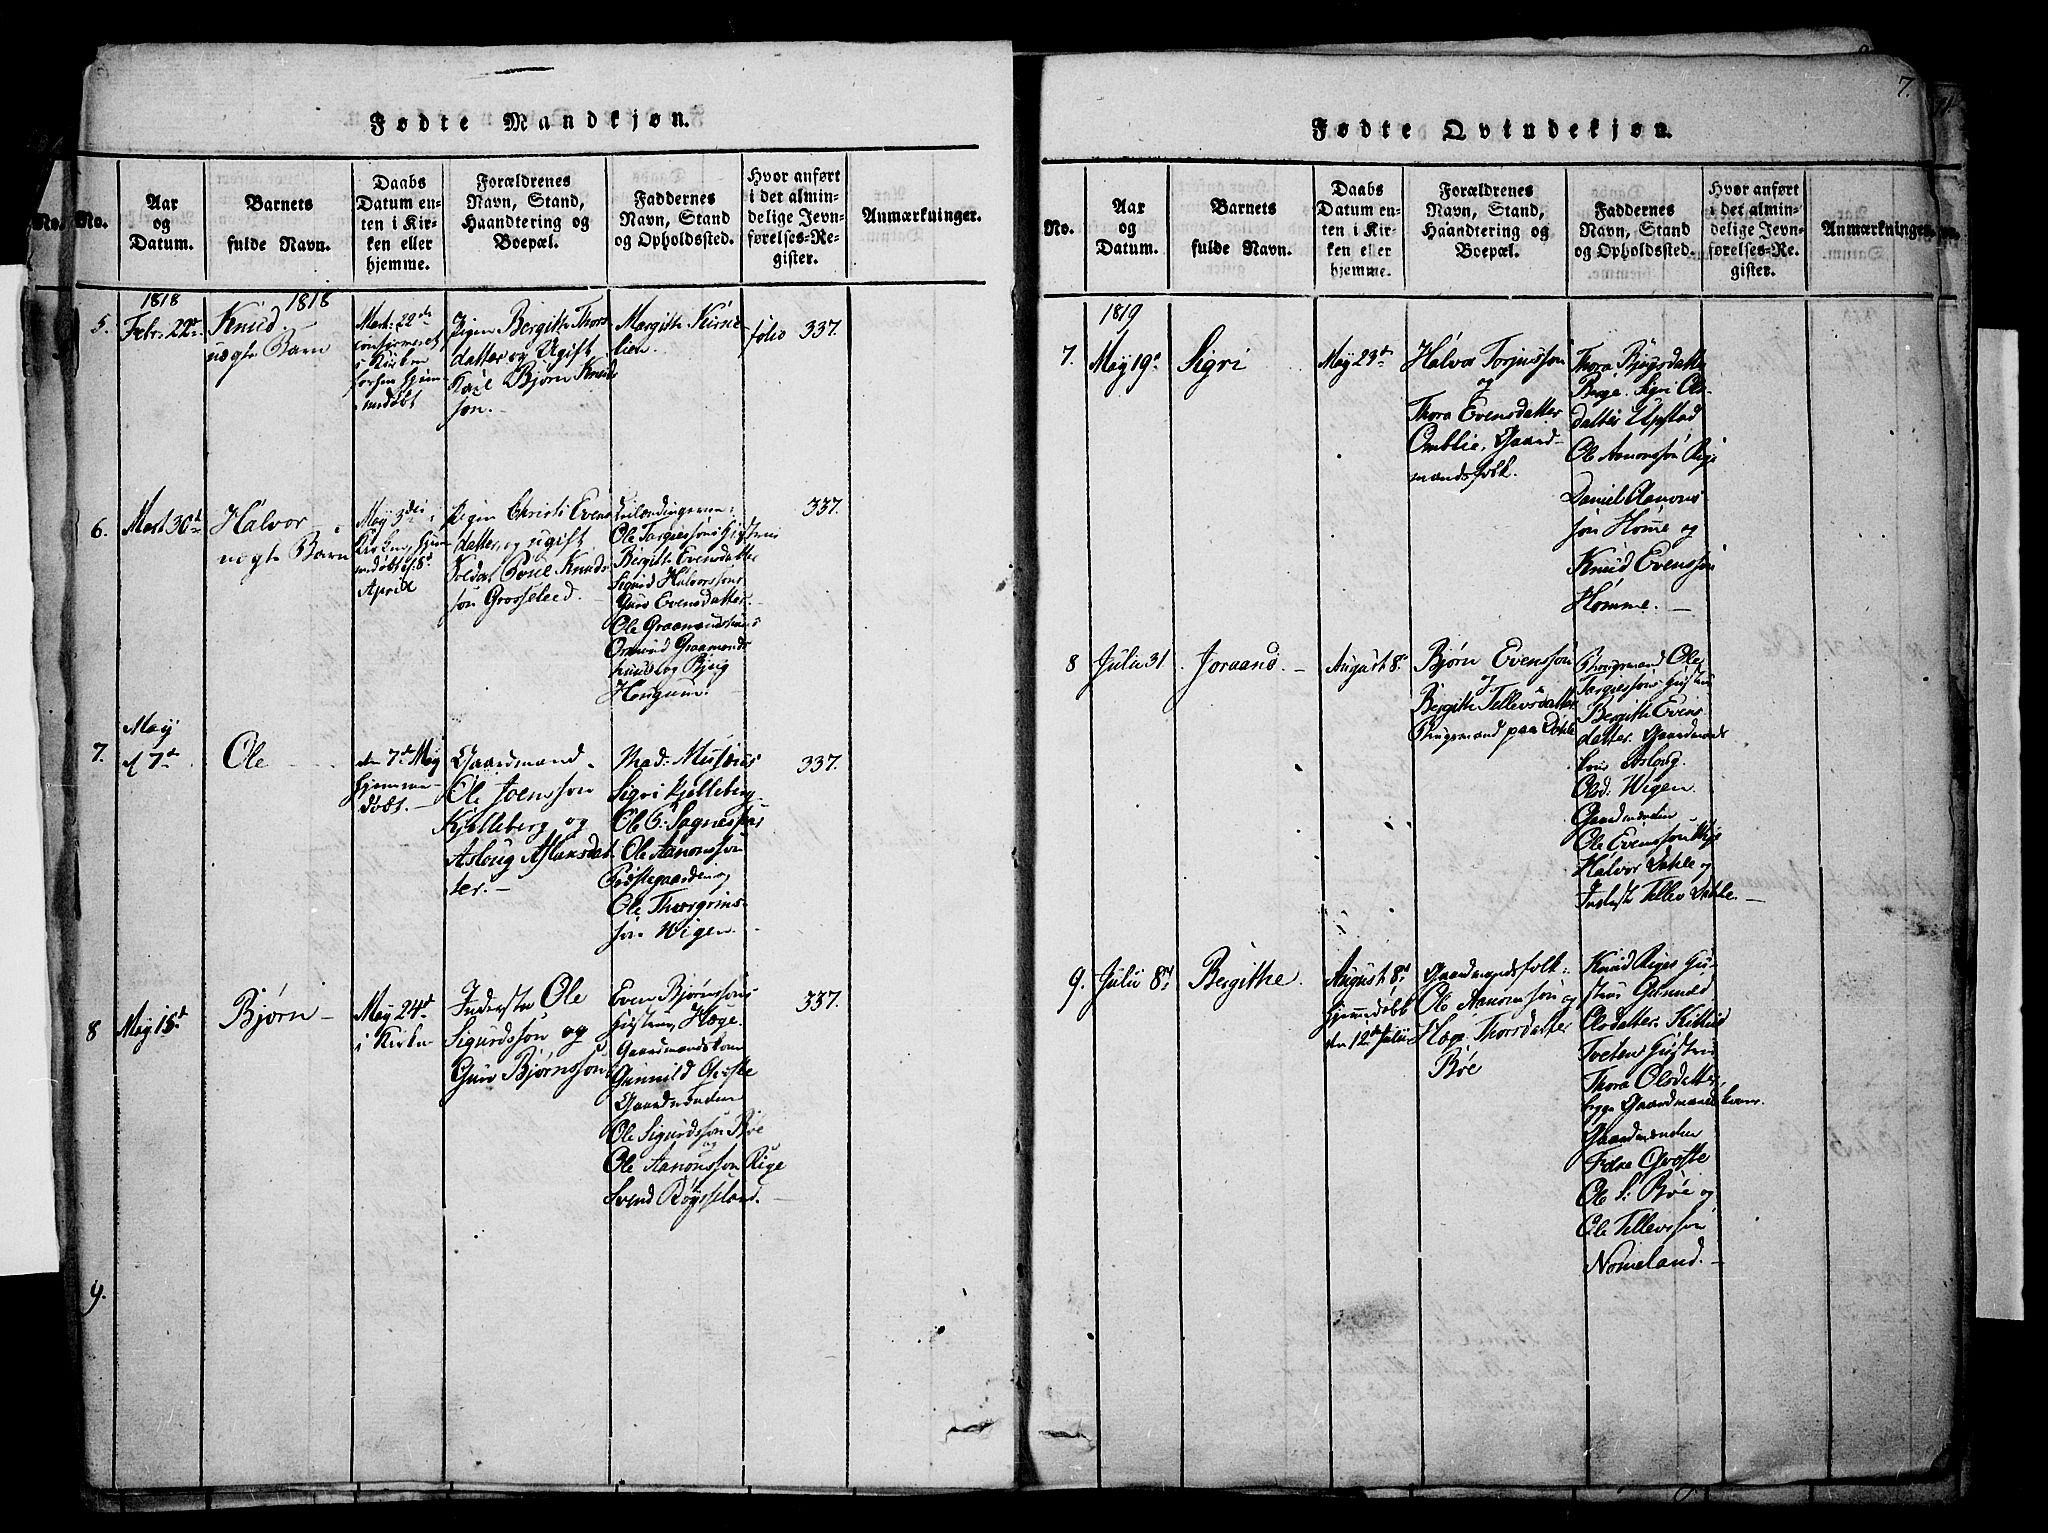 Fødte Mandkjøn.
No.
No.
Aar
og
Datum.
Barnets
fulde Navn.
Daabs
Datum en-
ten i Kir-
ken eller
hjemme.
Forældrenes
Navn, Stand,
Haandtering og
Boepæl.
Faddernes
Navn, Stand
og Opholdssted.
Hvor anført
i det almin-
delige Jevn-
førelses-Re-
gister.
Anmærkninger.
5.
1818
Febr. 22de
Knud. 1818
uægte Barn
Mart: 22de
confirmeret
i Kirken
forhen hjem-
medøbt
Pigen Bergith Thors
datter og Ugift
Karl Bjørn Knud
søn.
Margith
folio 337.
6.
Mart 30te
Halvor
uægte Barn
May 3die i
Kirken, hjem-
medøbt d: 8de
April
Pigen Christi Evens
datter og ugift
Soldat Poul Knuds
søn Grosseleed.
Ole Targiessøns Hustrue
Bergith Evensdatter
Sigrid Halvorssøns
Guro Evensdatter.
Ole Graamundssøns
Osmund Graamonds
og Bjug
337.
7.
May
d 7de
Ole
den 7de May
hjemme-
døbt.
Gaardmand
Ole Joenssøn
Kjelleberg og
Asloug Aslaksdat
ter.
Mad: Musæus
Sigri Kjelleberg
Ole
Ole Aanonssøn
Præstegaarden og
Ole Thorgrims-
søn Wigen.
337.
8
May 15de
Bjørn
May 24de
i Kirken
Inderste Ole
Sigurdssøn og
Guro Bjørnssøn
Even Bjørnssøns
Hustrue, Hæge.
Gaardmandskone
Gunnild Qvæste
Gaardmænden
Ole Sigurdssøn Bøe
og
Ole Aanonssøn Rige
Svend Røysseland.
337.
9.
7.
Fødte Qvindekjøn.
No.
Aar
og
Datum.
Barnets
fulde Navn.
Daabs
Datum en-
ten i Kir-
ken eller
hjemme.
Forældrenes
Navn, Stand,
Haandtering og
Boepæl.
Faddernes
Navn, Stand
og Opholdssted.
Hvor anført
i det almin-
delige Jevn-
førelses-Re-
gister.
Anmærkninger.
7.
1819
May 19de
Sigri
May 23de
Halvor Torjussøn
og
Thora Evensdatter
Omblie, Gaard-
mandsfolk.
Thora Bjugsdatter
Berge. Sigri Ols-
datter Upstad
Ole Aanonssøn Rige
Daniel Aanons
søn Homme og
Knud Evenssøn
Homme.
8
Julii 31
Joraand.
August 8de
Bjørn Evenssøn
og
Bergith Tellevsdatter
Brugsmand paa Dahle
Brugsmand Ole
Targiessøns Hustrue
Bergith Evens
datter. Gaardmands
kone Aslaug
Olsd: Wigen.
Gaardmænden
Ole Evenssøn
Halvor Dahle og
Inderste Tellev Dahle.
9.
Julii 8de
Bergithe.
August 8de
hjemmedøbt
den 12te Julii
Gaardmandsfolk:
Ole Aanonssøn og
Hæge Thorsdatter
Bøe
Knud Riges Hu-
strue Gunnild
Olsdatter. Kittild
Tveten Hustrue
Thora Olsdatter,
begge Gaardmandskoner.
Gaardmænden
Folke Qvæste
Ole S: Bøe og
Ole Tellevssøn
Nomeland.